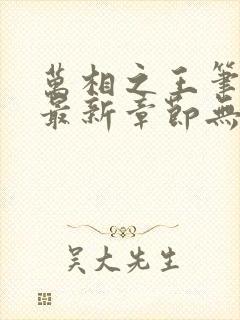 萬相之王筆
最新章節無
吳大先生